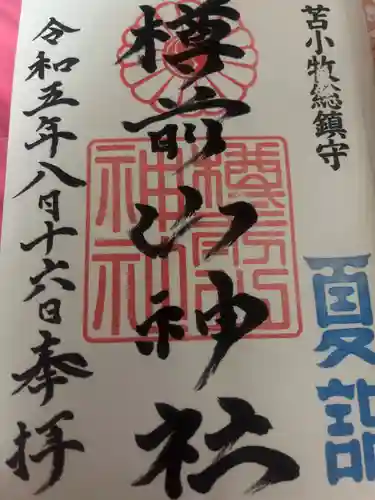 苫小牧総鎮守
夏詣
樽前山神社
樽前山神社
令和五年八月十六日奉拝